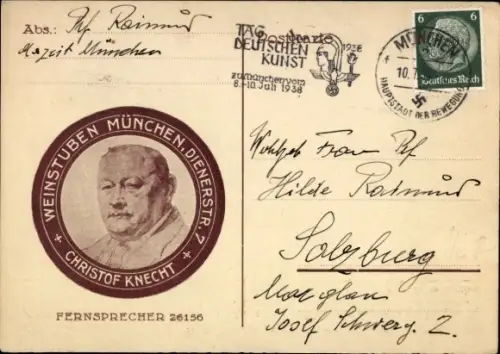 Abs.: Rf Raimund
Postkarte
TAG DER
DEUTSCHEN
KUNST
1938
zu München vom
8.-10. Juli 1938
MÜNCHEN
10.7.
HAUPTSTADT DER BEWEGUNG
6 6
Deutsches Reich
München
WEINSTUBEN MÜNCHEN, DIENERSTR. 7
CHRISTOF KNECHT
FERNSPRECHER 26156
Frau Rf
Hilde Raimund
Salzburg
Maxglan
Josef Schwerg. 2.